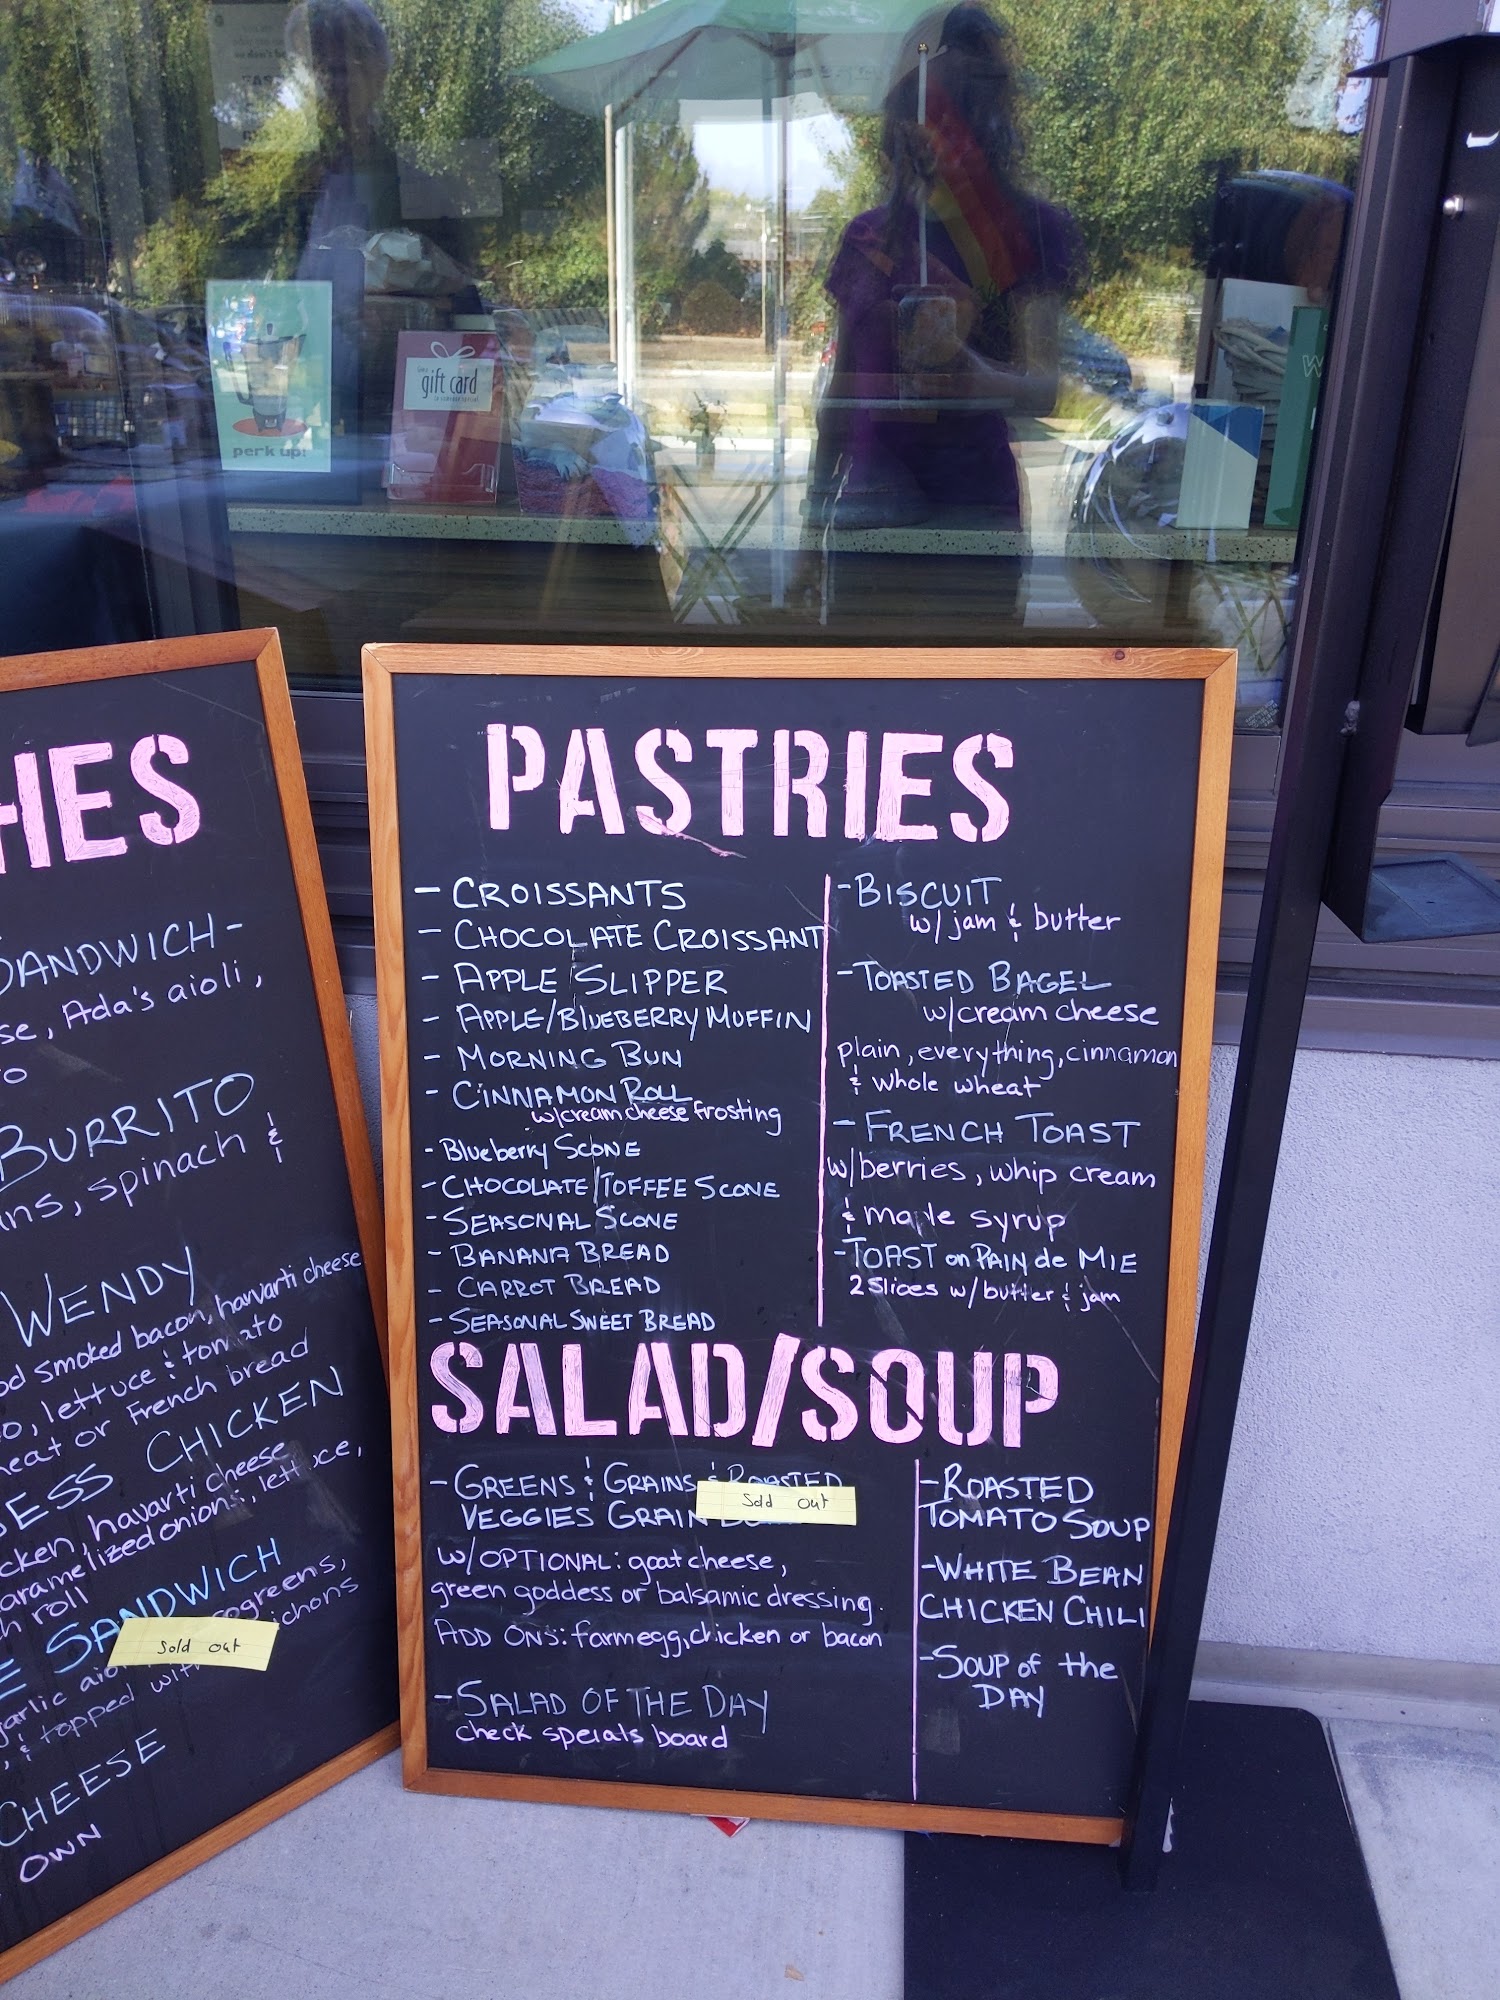 perk up!
gift card
HES
SANDWICH -
se, Ada's aioli,
BURRITO
ins, spinach &
WENDY
od smoked bacon, havarti cheese
o, lettuce & tomato
heat or French bread
ESS CHICKEN
cken, havarti cheese
caramelized onions, lettuce,
h roll
E SANDWICH
Sold out
rogreens,
garlic aio
ichons
, & topped with
CHEESE
OWN
PASTRIES
- CROISSANTS
- CHOCOLATE CROISSANT
- APPLE SLIPPER
- APPLE/BLUEBERRY MUFFIN
- MORNING BUN
- CINNAMON ROLL
w/cream cheese frosting
- Blueberry SCONE
- CHOCOLATE/TOFFEE SCONE
- SEASONAL SCONE
- BANANA BREAD
- CARROT BREAD
- SEASONAL SWEET BREAD
- BISCUIT
w/ jam & butter
- TOASTED BAGEL
w/cream cheese
plain, everything, cinnamon
& whole wheat
- FRENCH TOAST
w/berries, whip cream
& maple syrup
- TOAST on PAIN de MIE
2 slices w/butter & jam
SALAD/SOUP
- GREENS & GRAINS & ROASTED
VEGGIES GRAIN
Sold out
w/OPTIONAL: goat cheese,
green goddess or balsamic dressing.
ADD ONS: farm egg, chicken or bacon
- SALAD OF THE DAY
check speials board
- ROASTED
TOMATO SOUP
- WHITE BEAN
CHICKEN CHILI
- SOUP of the
DAY